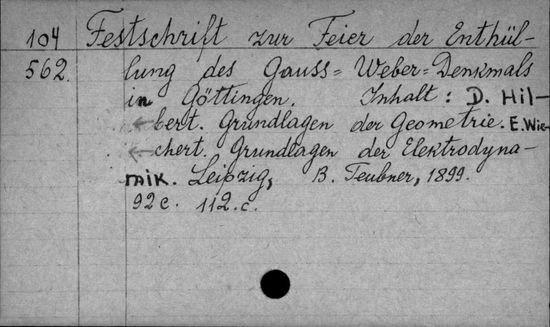 104 Festschrift zur Feier der Enthül-
562. lung des Gauss=Weber=Denkmals
in Göttingen. Inhalt: D. Hil-
bert. Grundlagen der Geometrie. E. Wie-
chert. Grundlagen der Elektrodyna-
mik. Leipzig, B. Teubner, 1899.
92 c. 112. c.